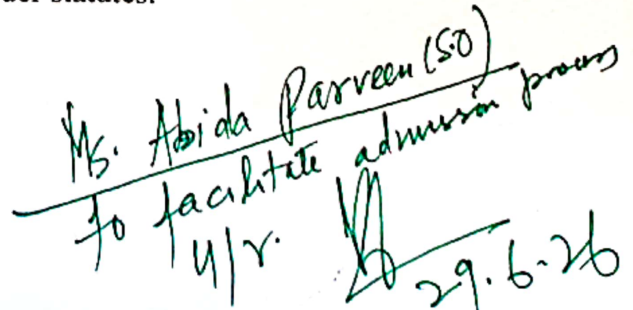 statutes.
Ms. Abida Parveen (SO)
to facilitate admission process
u/r.
29.6.26